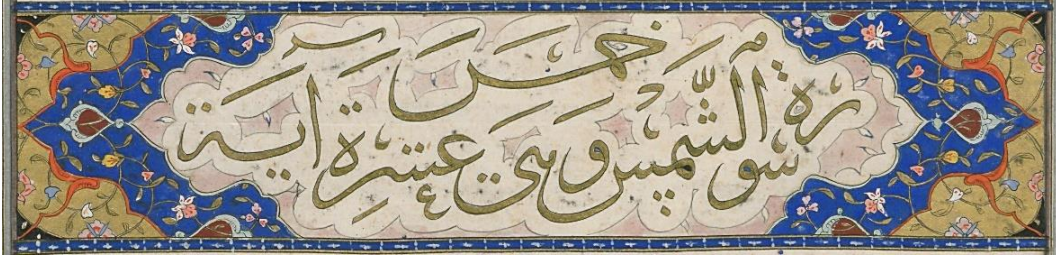 سورة الشمس وهي خمس عشرة آية